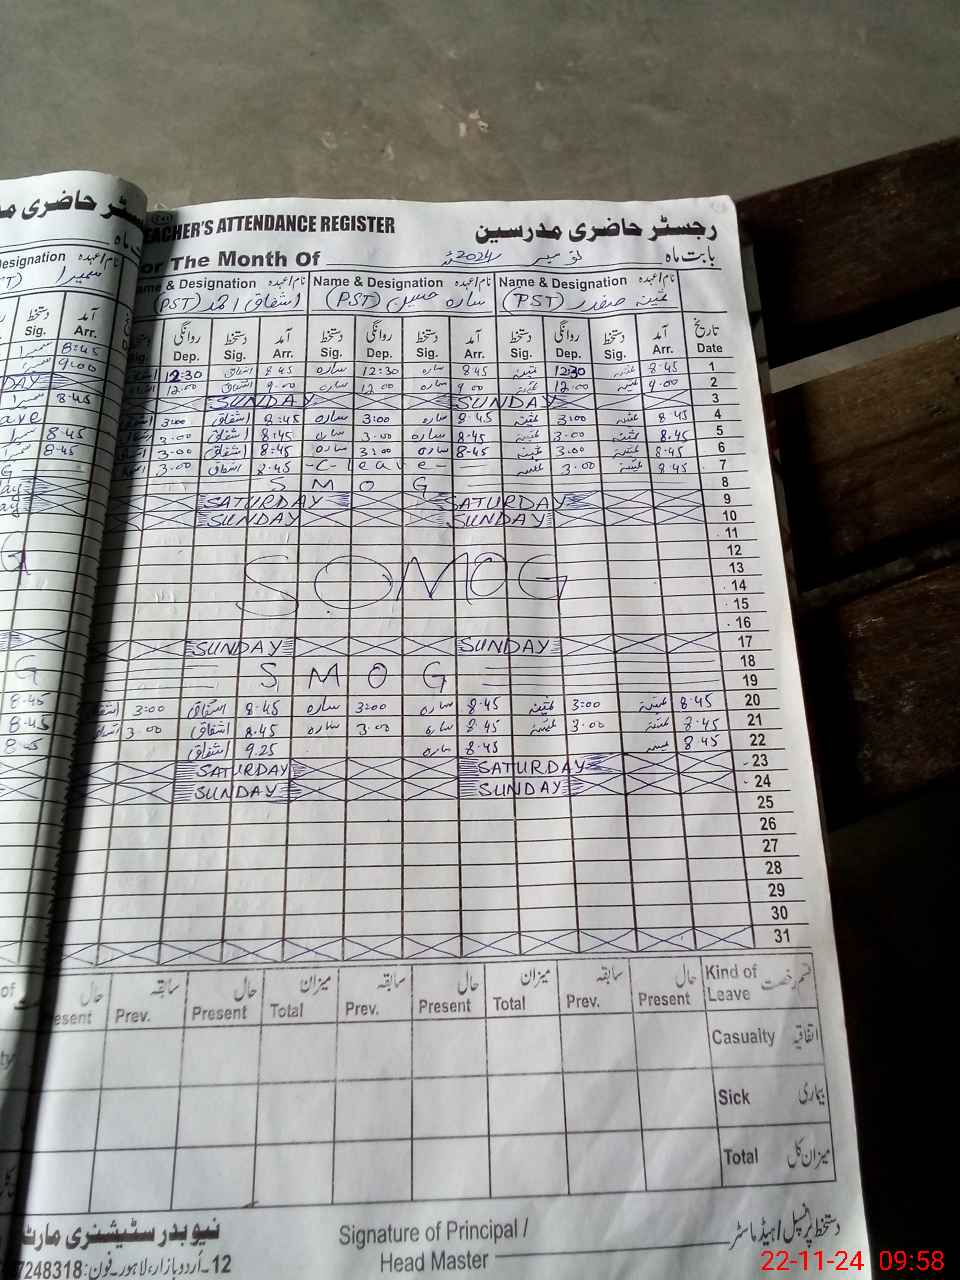 TEACHER'S ATTENDANCE REGISTER رجسٹر حاضری مدرسین
For The Month Of نومبر 2024ء بابت ماہ
Name & Designation نام/عہدہ Name & Designation نام/عہدہ Name & Designation نام/عہدہ
(PST) اشفاق احمد (PST) سارہ حسین (PST) صفدر
روانگی دستخط آمد دستخط روانگی دستخط آمد دستخط روانگی دستخط آمد تاریخ
Sig. Dep. Sig. Arr. Sig. Dep. Sig. Arr. Sig. Dep. Sig. Arr. Date
12:30 اشفاق 8:45 سارہ 12:30 سارہ 8:45 12:30 8:45 1
12:00 اشفاق 9:00 سارہ 12:00 سارہ 9:00 12:00 9:00 2
SUNDAY SUNDAY 3
3:00 اشفاق 8:45 سارہ 3:00 سارہ 8:45 3:00 8:45 4
3:00 اشفاق 8:45 سارہ 3:00 سارہ 8:45 3:00 8:45 5
3:00 اشفاق 8:45 سارہ 3:00 سارہ 8:45 3:00 8:45 6
3:00 اشفاق 8:45 -C-leave- 3:00 8:45 7
S M O G 8
SATURDAY SATURDAY 9
SUNDAY SUNDAY 10
11
12
SOMOG 13
14
15
16
SUNDAY SUNDAY 17
18
S M O G 19
3:00 اشفاق 8:45 سارہ 3:00 سارہ 8:45 3:00 8:45 20
3:00 اشفاق 8:45 سارہ 3:00 سارہ 8:45 3:00 8:45 21
اشفاق 9.25 سارہ 8:45 8:45 22
SATURDAY SATURDAY 23
SUNDAY SUNDAY 24
25
26
27
28
29
30
31
حال سابقہ حال میزان سابقہ حال میزان سابقہ حال Kind of Leave قسم رخصت
Present Prev. Present Total Prev. Present Total Prev. Present
Casualty اتفاقیہ
Sick بیماری
Total میزان کل
نیو بدر سٹیشنری مارٹ Signature of Principal / Head Master دستخط پرنسپل/ہیڈماسٹر
12۔اُردو بازار، لاہور۔فون:7248318
22-11-24 09:58